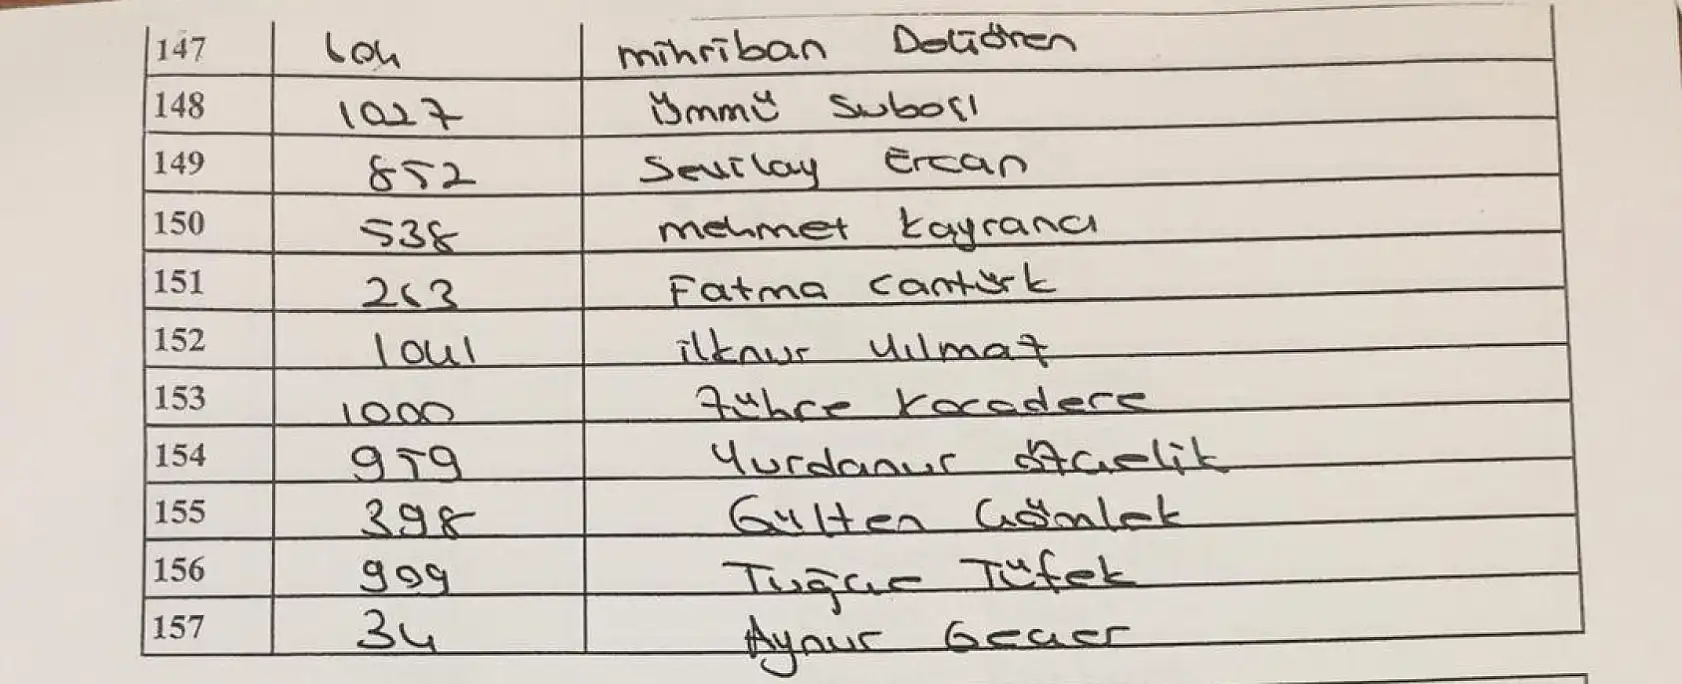 147 604 mihriban Deliören
148 1027 Ümmü Subaşı
149 852 Sevilay Ercan
150 538 mehmet Kayrancı
151 263 Fatma Cantürk
152 1041 ilknur Yılmaz
153 1000 Zühre Kocadere
154 959 Yurdanur Özçelik
155 398 Gülten Gömlek
156 909 Tuğçe Tüfek
157 34 Aynur Geçer